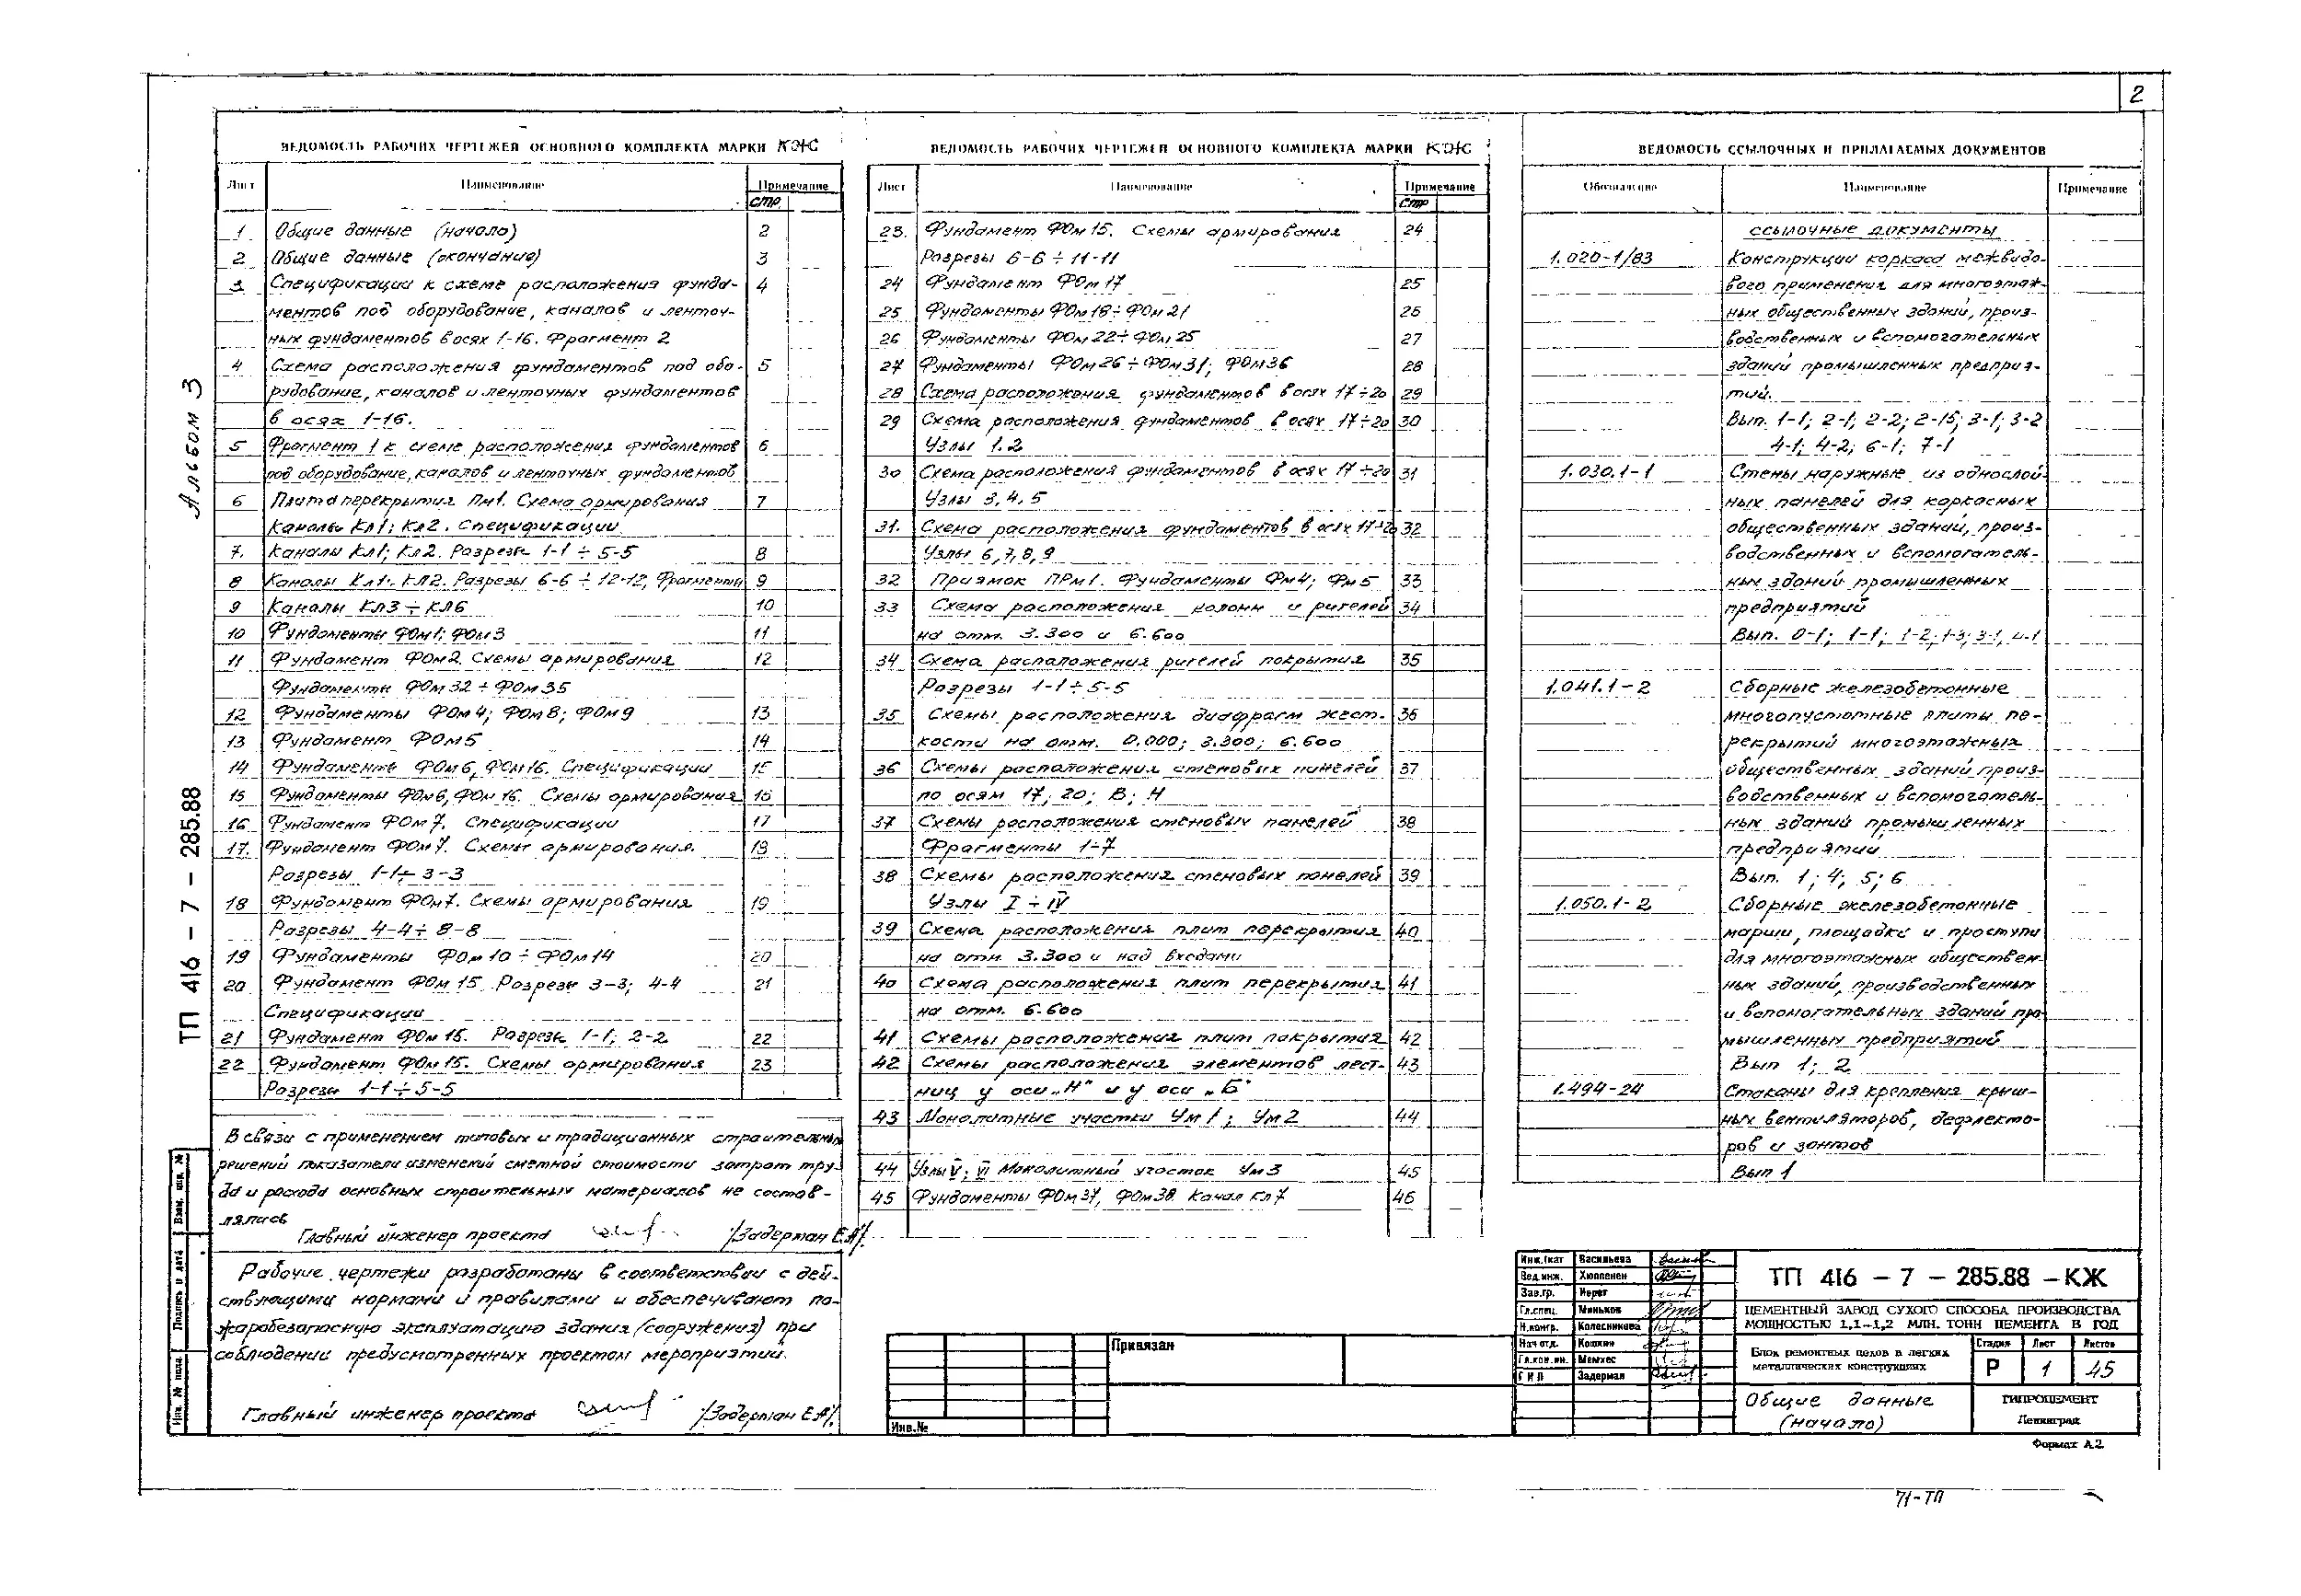 2
Альбом 3
ТП 416 – 7 – 285.88
ВЕДОМОСТЬ РАБОЧИХ ЧЕРТЕЖЕЙ ОСНОВНОГО КОМПЛЕКТА МАРКИ КЖ
Лист Наименование Примечание
стр.
1. Общие данные (начало) 2
2 Общие данные (окончание) 3
3 Спецификации к схеме расположения фунда- 4
ментов под оборудование, каналов и ленточ-
ных фундаментов в осях 1-16. Фрагмент 2
4 Схема расположения фундаментов под обо- 5
рудование, каналов и ленточных фундаментов
в осях 1-16.
5 Фрагмент 1 к схеме расположения фундаментов 6
под оборудование, каналов и ленточных фундаментов
6 Плита перекрытия Пм1. Схема армирования 7
Каналы Кл1; Кл2. Спецификации
7. Каналы Кл1; Кл2. Разрезы 1-1 ÷ 5-5 8
8 Каналы Кл1; КЛ2. Разрезы 6-6 ÷ 12-12, Фрагменты 9
9 Каналы КЛ3 ÷ КЛ6 10
10 Фундаменты ФОм1; ФОм3 11
11 Фундамент ФОм2. Схемы армирования 12
Фундаменты ФОм32 ÷ ФОм35
12 Фундаменты ФОм4; ФОм8; ФОм9 13
13 Фундамент ФОм5 14
14 Фундаменты ФОм6, ФОм16. Спецификации 15
15 Фундаменты ФОм6, ФОм16. Схемы армирования 16
16 Фундамент ФОм7. Спецификации 17
17. Фундамент ФОм7. Схемы армирования. 18
Разрезы 1-1 ÷ 3-3
18 Фундамент ФОм7. Схемы армирования 19
Разрезы 4-4 ÷ 8-8
19 Фундаменты ФОм10 ÷ ФОм14 20
20 Фундамент ФОм15. Разрезы 3-3; 4-4 21
Спецификации
21 Фундамент ФОм15. Разрезы 1-1; 2-2 22
22 Фундамент ФОм15. Схемы армирования 23
Разрезы 1-1 ÷ 5-5
В связи с применением типовых и традиционных строительных
решений показатели изменений сметной стоимости затрат тру-
да и расхода основных строительных материалов не состав-
лялись
Главный инженер проекта /Задерман Е.А/.
Рабочие чертежи разработаны в соответствии с дей-
ствующими нормами и правилами и обеспечивают по-
жаробезопасную эксплуатацию здания (сооружения) при
соблюдении предусмотренных проектом мероприятий.
Главный инженер проекта /Задерман Е.А/.
Взам. инв. №
Подпись и дата
Инв. № подл.
ВЕДОМОСТЬ РАБОЧИХ ЧЕРТЕЖЕЙ ОСНОВНОГО КОМПЛЕКТА МАРКИ КЖ
Лист Наименование Примечание
стр
23. Фундамент ФОм15. Схемы армирования 24
Разрезы 6-6 ÷ 11-11
24 Фундамент ФОм17 25
25 Фундаменты ФОм18 ÷ ФОм21 26
26 Фундаменты ФОм22 ÷ ФОм25 27
27 Фундаменты ФОм26 ÷ ФОм31; ФОм36 28
28 Схема расположения фундаментов в осях 17÷20 29
29 Схема расположения фундаментов в осях 17÷20 30
Узлы 1.2
30 Схема расположения фундаментов в осях 17÷20 31
Узлы 3, 4, 5
31. Схема расположения фундаментов в осях 17÷20 32
Узлы 6,7,8,9
32 Приямок ПРм1. Фундаменты Фм4; Фм5 33
33 Схема расположения колонн и ригелей 34
на отм. 3.300 и 6.600
34 Схема расположения ригелей покрытия 35
Разрезы 1-1 ÷ 5-5
35 Схемы расположения диафрагм жест- 36
кости на отм. 0.000; 3.300; 6.600
36 Схемы расположения стеновых панелей 37
по осям 17; 20; В; Н
37 Схемы расположения стеновых панелей 38
Фрагменты 1-7
38 Схемы расположения стеновых панелей 39
Узлы I ÷ IV
39 Схема расположения плит перекрытия 40
на отм. 3.300 и над входами
40 Схема расположения плит перекрытия 41
на отм. 6.600
41 Схемы расположения плит покрытия 42
42 Схемы расположения элементов лест- 43
ниц у оси „Н" и у оси „Б"
43 Монолитные участки Ум1; Ум2 44
44 Узлы V; VI Монолитный участок Ум3 45
45 Фундаменты ФОм37, ФОм38. Канал Кл7 46
ВЕДОМОСТЬ ССЫЛОЧНЫХ И ПРИЛАГАЕМЫХ ДОКУМЕНТОВ
Обозначение Наименование Примечание
Ссылочные документы
1.020-1/83 Конструкции каркаса межвидо-
вого применения для многоэтаж-
ных общественных зданий, произ-
водственных и вспомогательных
зданий промышленных предприя-
тий.
Вып. 1-1; 2-1; 2-2; 2-15; 3-1; 3-2
4-1; 4-2; 6-1; 7-1
1.030.1-1 Стены наружные из однослой-
ных панелей для каркасных
общественных зданий, произ-
водственных и вспомогатель-
ных зданий промышленных
предприятий
Вып. 0-1; 1-1; 1-2; 1-3; 3-1, 4-1
1.041.1-2 Сборные железобетонные
многопустотные плиты пе-
рекрытий многоэтажных
общественных зданий произ-
водственных и вспомогатель-
ных зданий промышленных
предприятий
Вып. 1; 4; 5; 6
1.050.1-2 Сборные железобетонные
марши, площадки и проступи
для многоэтажных обществен-
ных зданий, производственных
и вспомогательных зданий про
мышленных предприятий
Вып 1; 2
1.494-24 Стаканы для крепления крыш-
ных вентиляторов, дефлекто-
ров и зонтов
Вып 1
Привязан
Инв.№
Инж.1кат Васильева
Вед.инж. Хюппенен
Зав.гр.
Гл.спец. Миньков
Н.контр. Колесникова
Нач отд. Кошкин
Гл.кон.ин. Мемхес
Г И П Задерман
ТП 416 – 7 – 285.88 – КЖ
ЦЕМЕНТНЫЙ ЗАВОД СУХОГО СПОСОБА ПРОИЗВОДСТВА
МОЩНОСТЬЮ 1,1–1,2 МЛН. ТОНН ЦЕМЕНТА В ГОД
Блок ремонтных цехов в легких
металлических конструкциях
Стадия Лист Листов
Р 1 45
Общие данные
(начало)
ГИПРОЦЕМЕНТ
Ленинград
Формат А2
71-ТП